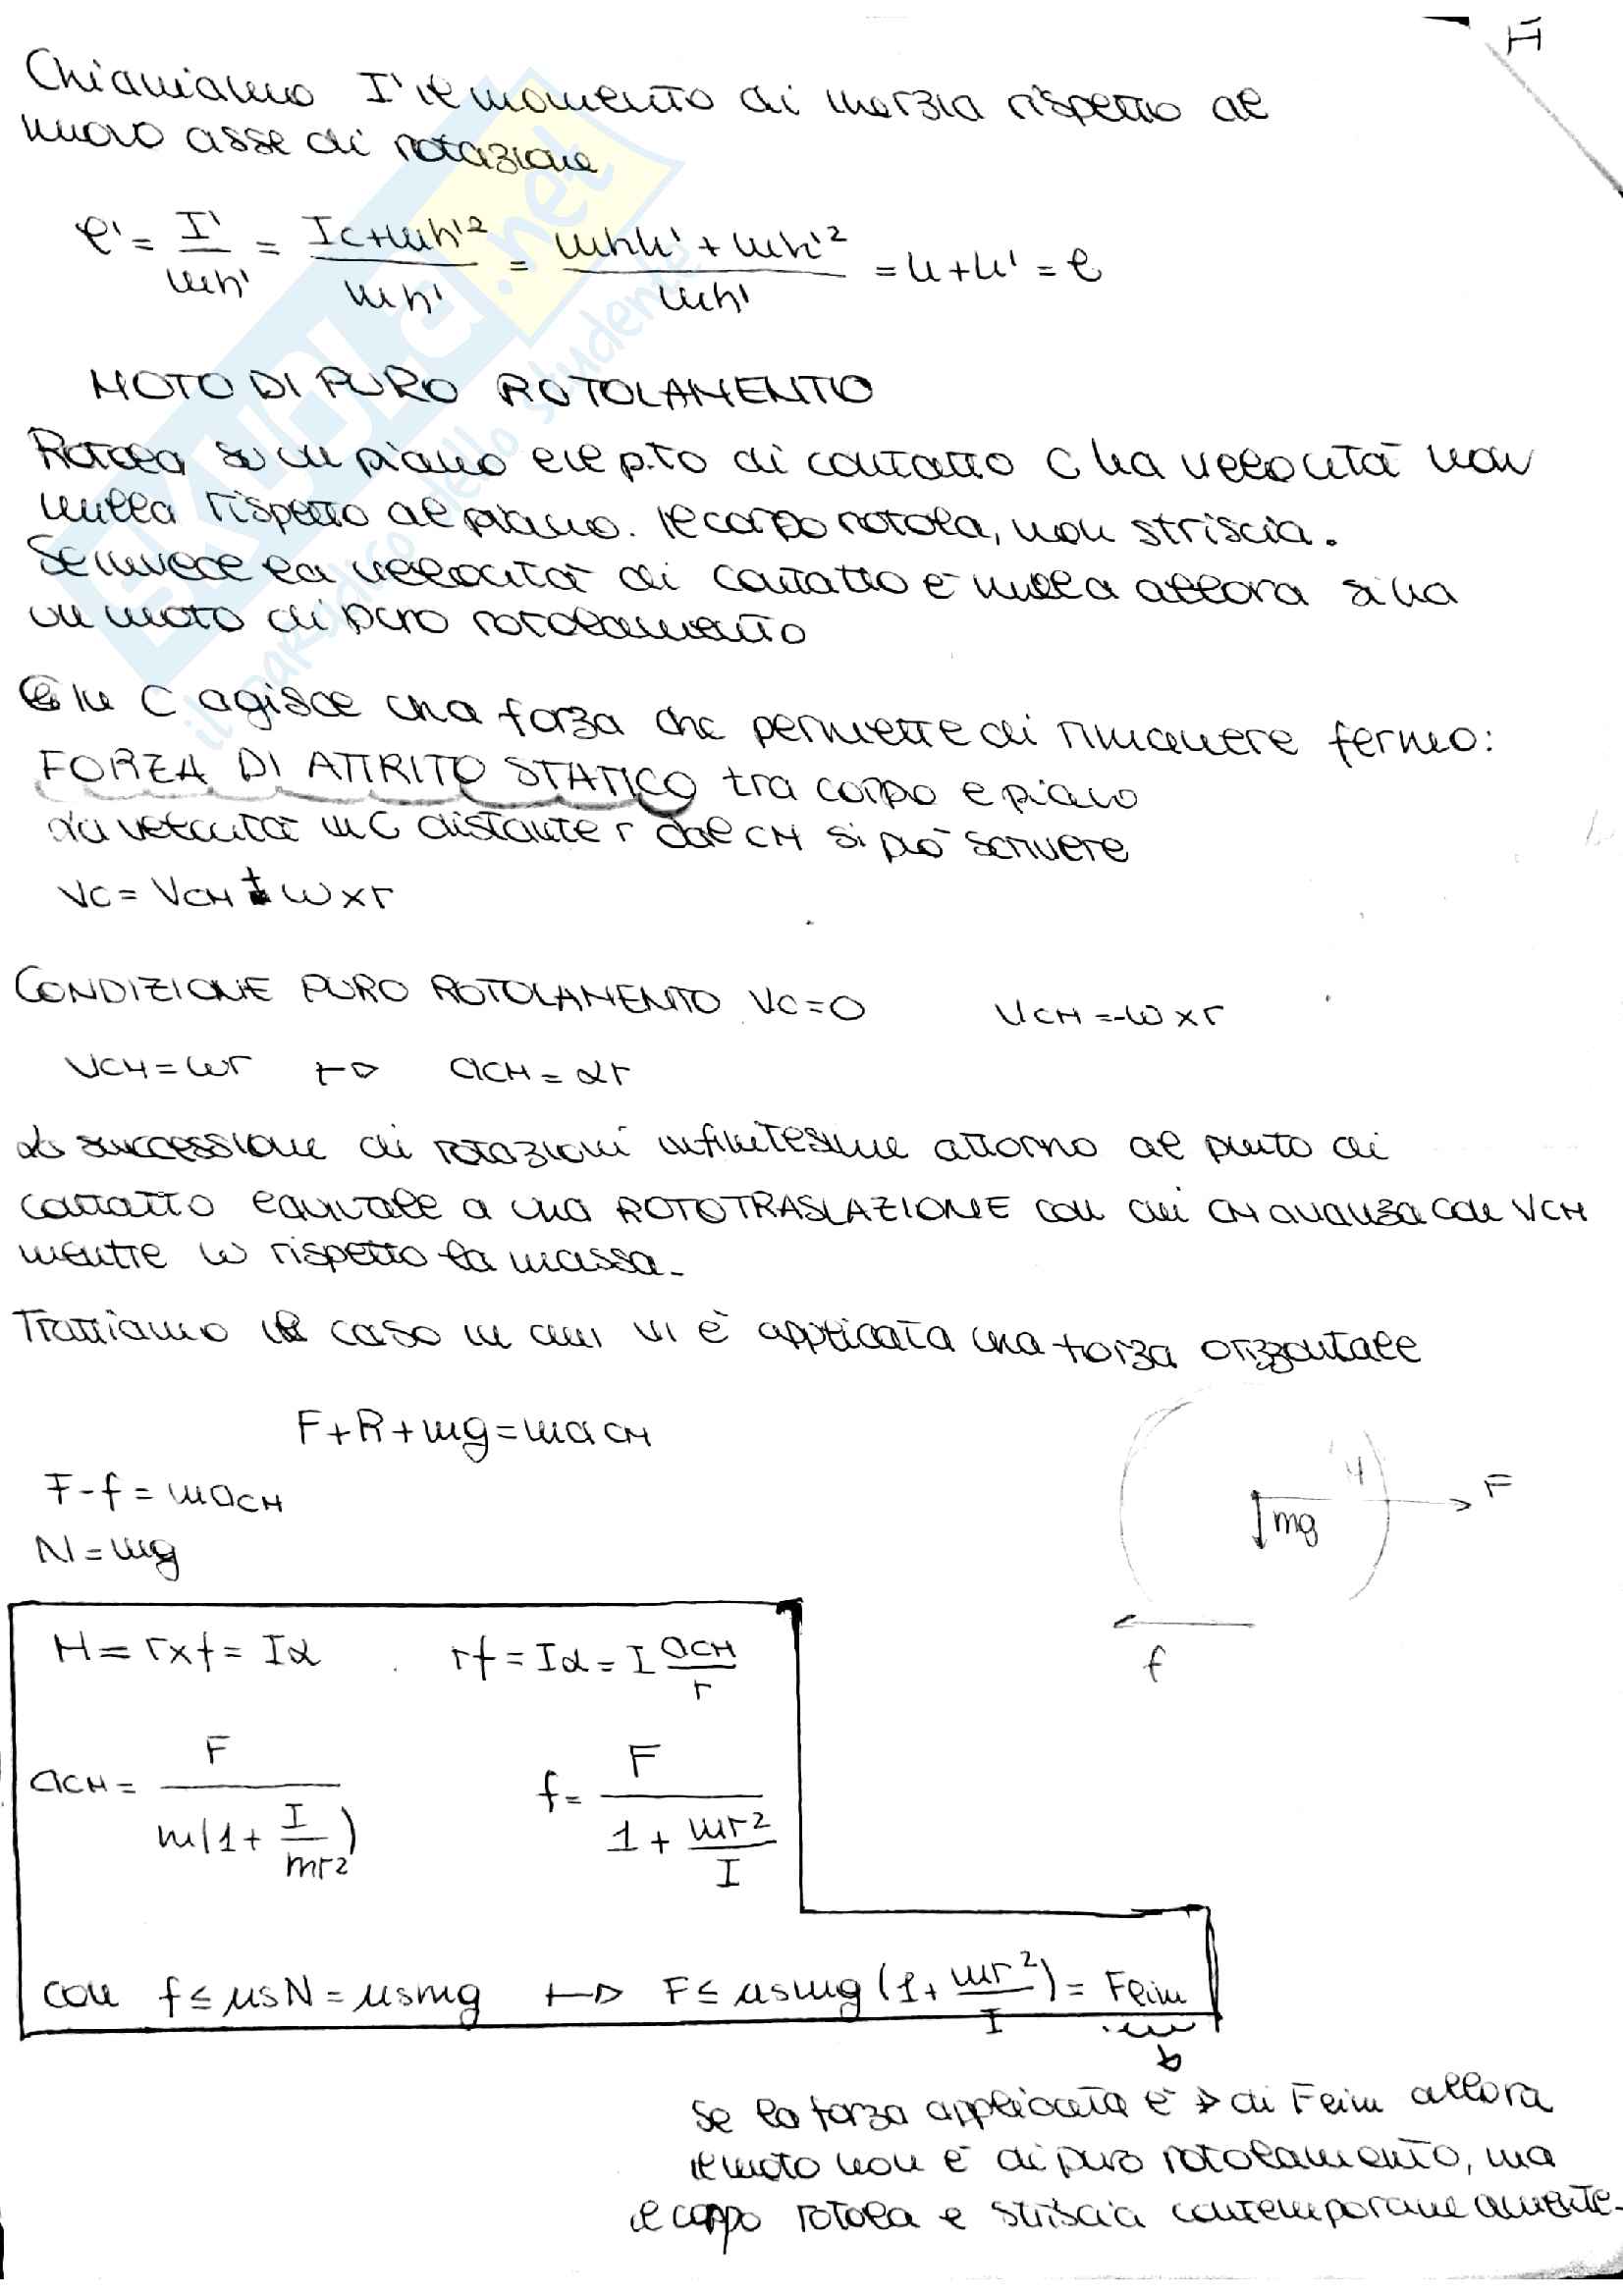 Chiamiamo I' il momento di inerzia rispetto al
nuovo asse di rotazione
l' = I'/mh' = Ic+mh'²/mh' = mhh'+mh'²/mh' = h+h' = l
MOTO DI PURO ROTOLAMENTO
Rotola su un piano e il p.to di contatto C ha velocità non
nulla rispetto al piano. Il corpo rotola, non striscia.
Se invece la velocità di contatto è nulla allora si ha
un moto di puro rotolamento
In C agisce una forza che permette di rimanere fermo:
FORZA DI ATTRITO STATICO tra corpo e piano
La velocità in C distante r dal CM si può scrivere
Vc = VCM + ω×r
CONDIZIONE PURO ROTOLAMENTO Vc=0 VCM=-ω×r
VCM=ωr ↦ aCM=αr
La successione di rotazioni infinitesime attorno al punto di
contatto equivale a una ROTOTRASLAZIONE con cui CM avanza con VCM
mentre ω rispetto la massa.
Trattiamo il caso in cui vi è applicata una forza orizzontale
F+R+mg=maCM
F-f=maCM
N=mg
F
mg
f
M=r×f=Iα rf=Iα=I aCM/r
aCM= F/m(1+ I/mr²) f= F/1+ mr²/I
con f≤μsN=μsmg ↦ F≤μsmg(1+ mr²/I)=Flim
Se la forza applicata è > di Flim allora
il moto non è di puro rotolamento, ma
il corpo rotola e striscia contemporaneamente.
SKUOLA.net
il paradiso dello studente